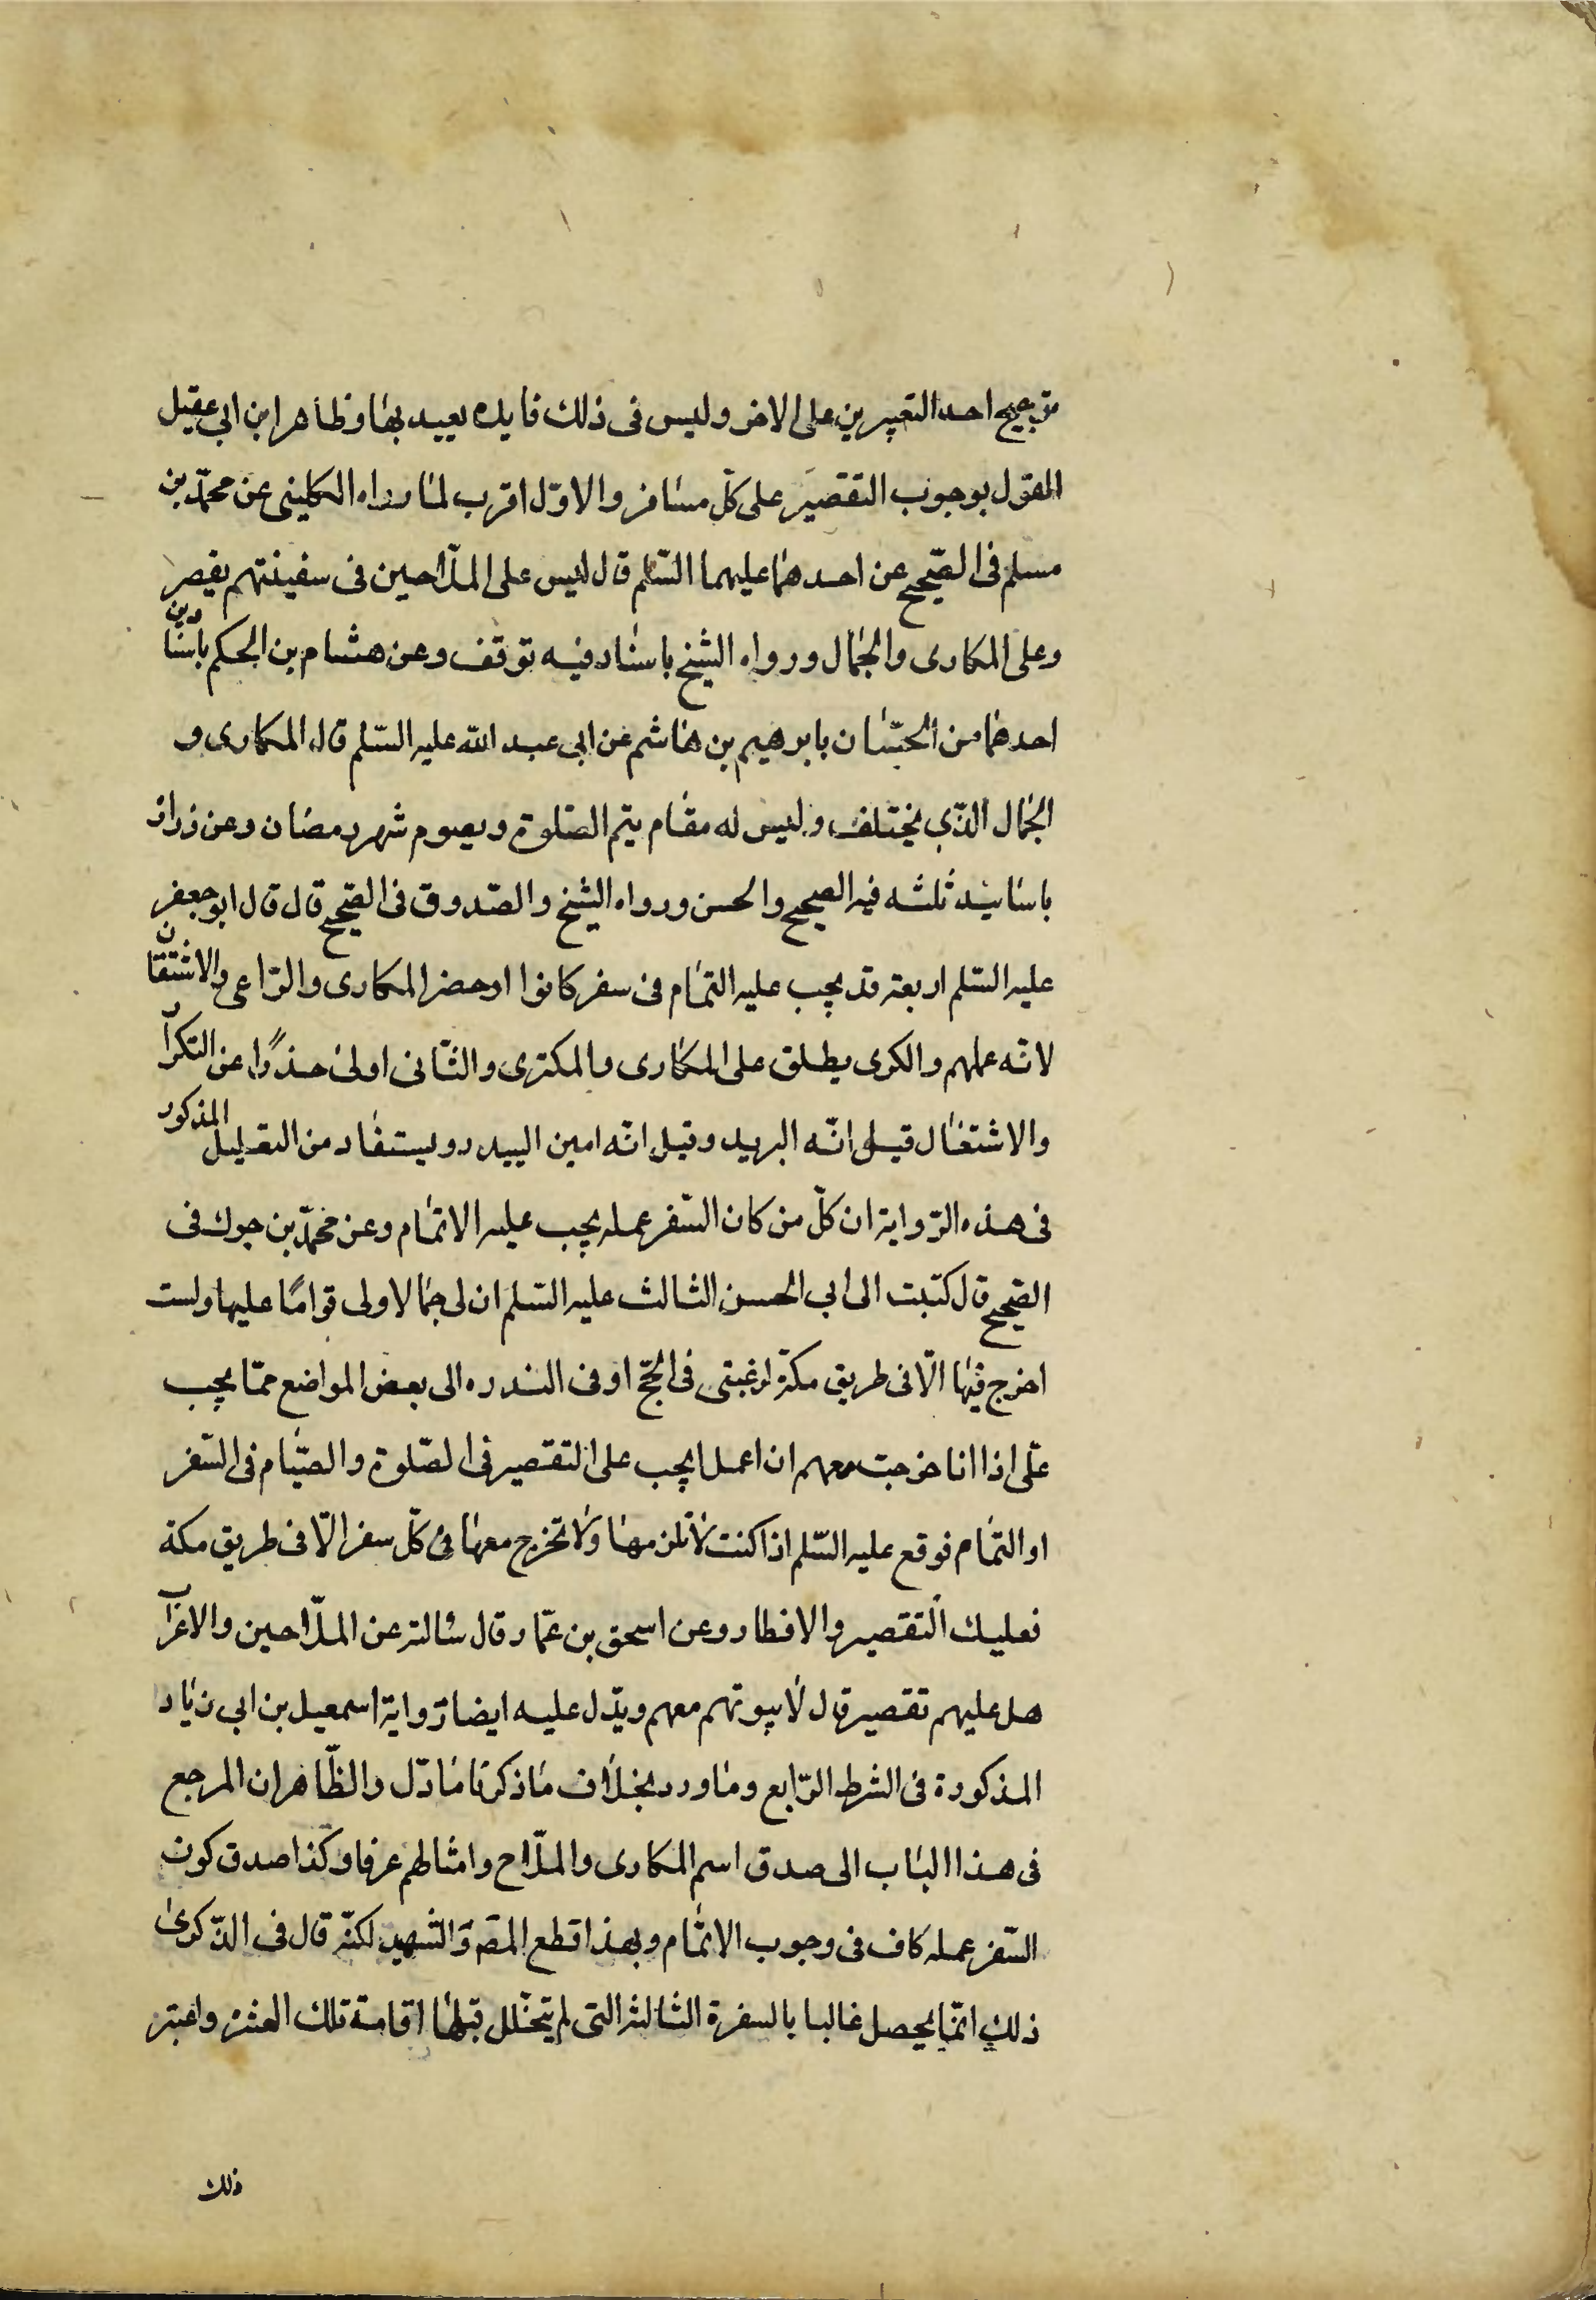 ترجيح احد التعبيرين على الاخر وليس فى ذلك فايده يعيد بها وظاهر ابن ابى عقيل
القول بوجوب التقصير على كلّ مسافر والاوّل اقرب لما رواه الكلينى عن محمّد بن
مسلم فى الصّحيح عن احدهما عليهما السّلم قال ليس على الملّاحين فى سفينتهم يقصر
وعلى المكارى والجمّال ورواه الشيخ باسناد فيه توقف وعن هشام بن الحكم باسنادين
احدهما من الحسّان بابرهيم بن هاشم عن ابى عبد الله عليه السّلم قال المكارى و
الجمال الذّى يختلف وليس له مقام يتم الصّلوة ويصوم شهر رمضان وعن زرارة
باسانيد ثلثه فيه الصحيح والحسن ورواه الشيخ والصّدوق فى الصّحيح قال قال ابو جعفر
عليه السّلم اربعة قد يجب عليه التمام فى سفر كانوا او حضر المكارى والرّاعى والاشتقان
لانّه عملهم والكرى يطلق على المكارى والمكترى والثّانى اولى حذرًا عن التكرار
والاشتغال قيل انّه البريد وقيل انّه امين البيدر ويستفاد من التعليل المذكور
فى هذه الرّواية ان كلّ من كان السّفر عمله يجب عليه الاتمام وعن محمّد بن جزك فى
الصّحيح قال كتبت الى ابى الحسن الثالث عليه السّلم ان لى جمالا ولى قوامًا عليها ولست
اخرج فيها الّا فى طريق مكة لرغبتى فى الحجّ او فى الندره الى بعض المواضع ممّا يجب
علّى اذا انا خرجت معهم ان اعمل ايجب على التقصير فى الصّلوة والصّيام فى السّفر
او التمام فوقع عليه السّلم اذا كنت لا تلزمها ولا تخرج معها فى كلّ سفر الّا فى طريق مكة
فعليك التقصير والافطار وعن اسحق بن عمّار قال سالته عن الملّاحين والاعراب
هل عليهم تقصير قال لا بيوتهم معهم ويدّل عليه ايضا رواية اسمعيل بن ابى زياد
المذكورة فى الشرط الرّابع وما ورد بخلاف ما ذكرنا مادّل والظّاهر ان المرجع
فى هذا الباب الى صدق اسم المكارى والملّاح وامثالهم عرفا وكذا صدق كون
السّفر عمله كاف فى وجوب الاتمام وبهذا قطع المصَ والشّهيد لكنّه قال فى الذّكرى
ذلك انّما يحصل غالبا بالسفرة الثالثة التى لم يتخلل قبلها اقامة تلك العشرة واعتبر
ذلك